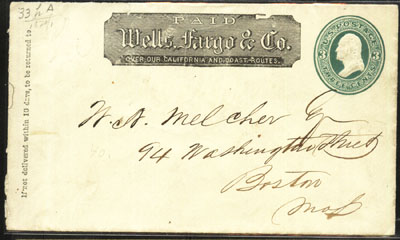 PAID
Wells, Fargo & Co.
OVER OUR CALIFORNIA AND COAST ROUTES.
U.S. POSTAGE
If not delivered within 10 days, to be returned to
33
W. A. Melcher
94 Washington Street
Boston
Mass